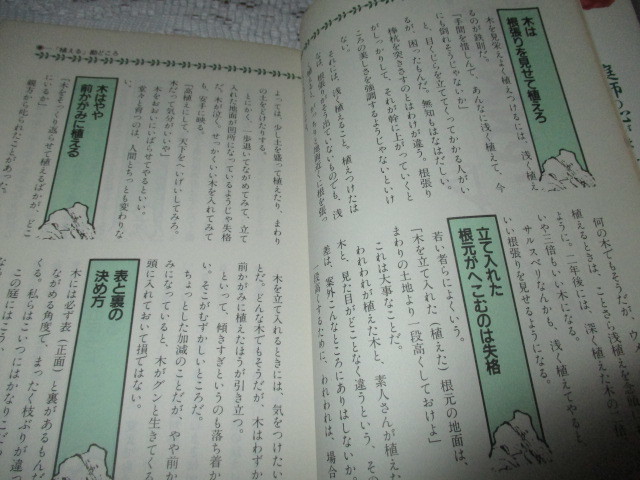 木は
根張りを見せて植えろ
木を見栄えよく植えつけるには、浅く植え
るのが鉄則だ。
「手間を惜しんで、あんなに浅く植えて、今
にも倒れそうじゃないか」
と、目くじらを立ててくってかかる人がい
るが、困ったもんだ。無知もはなはだしい。
棒杭を突きさすのとはわけが違う。根張り
がしっかりして、それが幹に上がっていくと
この美しさを強調するようじゃないといけ
ない。
それには、浅く植えること。植えつけたは
何の木でもそうだが、ウ
植えるときは、ことさら浅く植え
ように。二年後には、深く植えた木の
いや三倍もいい木になる。
サルスベリなんかも、浅く植えてやると
いい根張りを見せるようになる。
立て入れた
根元がへこむのは失格
若い者らによくいう。
「木を立て入れた（植えた）根元の地面は、
まわりの土地より一段高くしておけよ」
これは大事なことだ。
われわれが植えた木と、素人さんが植えた
木と、見た目がどことなく違うという、その
差は、案外こんなところにありはしないか。
一段高くするために、われわれは、場合
「植える」勘どころ
よっては、少し土を盛って植えたり、まわり
の土をすけたりする。
とにかく、一歩退いてながめてみて、立て
入れた地面が凹所になっているようじゃ失格
だ。木が泣く。せっかくいい木を入れてみて
も、安さに映る。
「高植えにして、天下をへいげいしてみろ。
木だって気分がいいぞ」
木をおおいにいばらせてやるといい。
堂々と育つのは、人間とちっとも変わりな
木はやや
前かがみに植える
「木をそっくり返らせて植えるばかが、どこ
にいるか」
親方から叱られたことがあった。
木を立て入れるときには、気をつけたい
とだ。どんな木でもそうだが、木はわずか
前かがみに植えたほうが引き立つ。
といって、傾きすぎというのも落ち着か
い。そこがむずかしいところだ。
ちょっとした加減のことだが、やや前か
みになっていると、木がグンと生きてくる
頭に入れておいて損はない。
表と裏の
決め方
木には必ず表（正面）と裏があるもんだ
ながめる角度で、まったく枝ぶりが違っ
くる。私らはこいつにはかなりこだ
この庭にはこう、